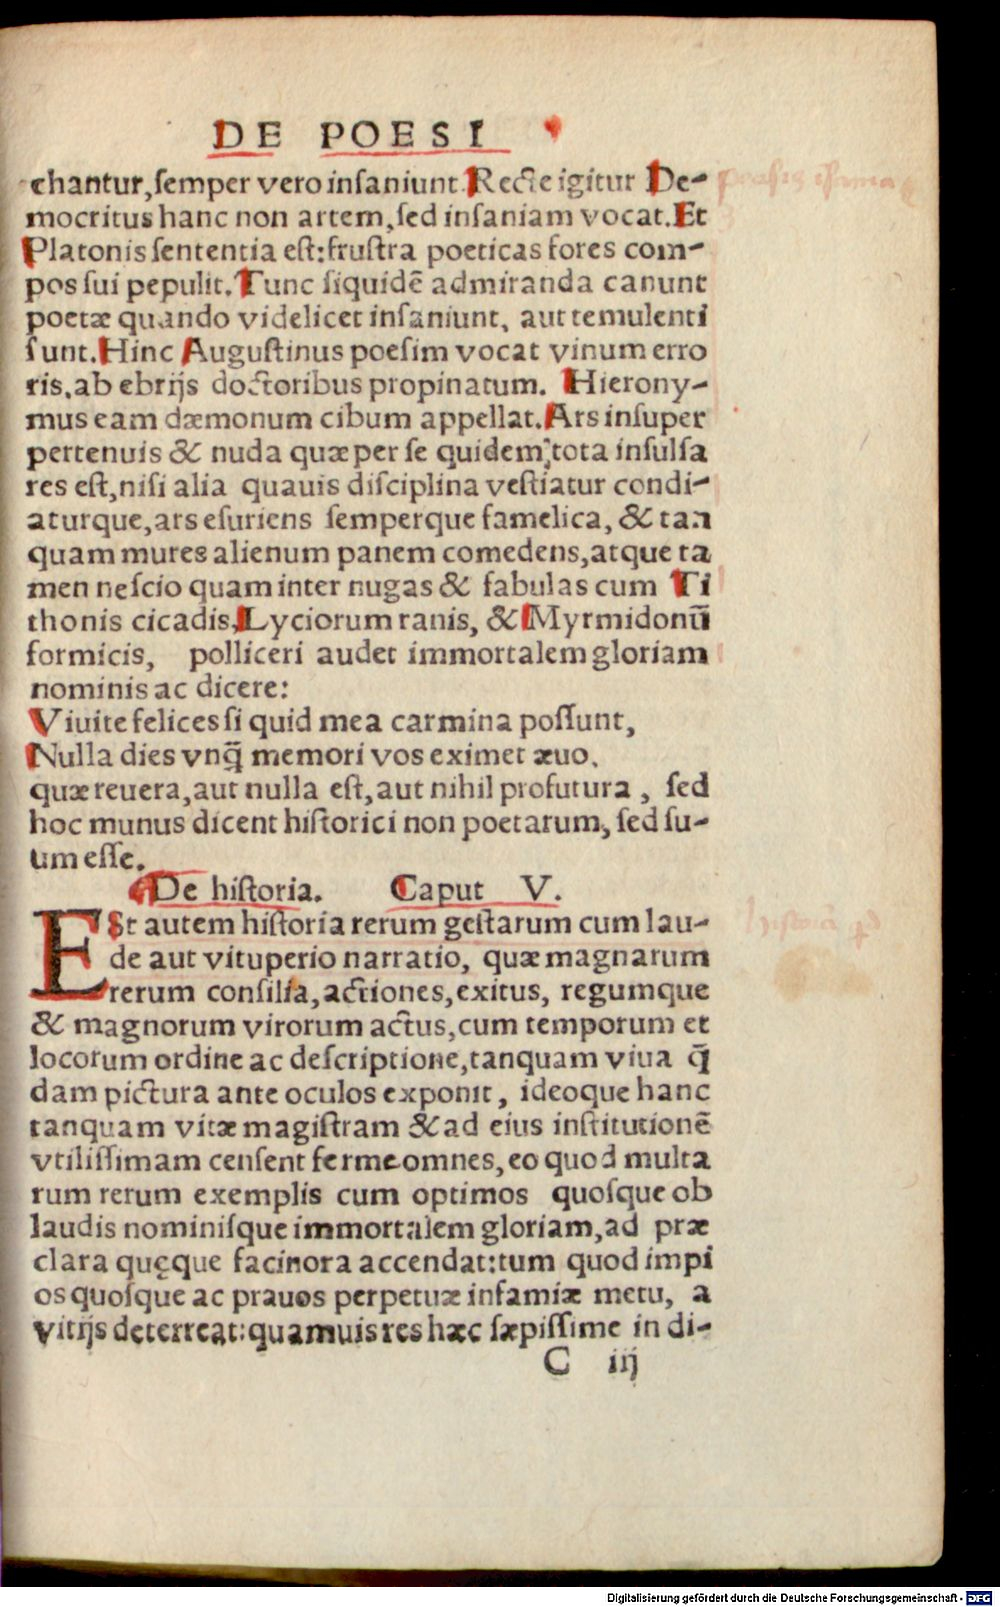 DE POESI
chantur, ſemper vero inſaniunt. Recte igitur De-
mocritus hanc non artem, ſed inſaniam vocat. Et
Platonis ſententia eſt: fruſtra poeticas fores com-
pos ſui pepulit. Tunc ſiquidē admiranda canunt
poetæ quando videlicet inſaniunt, aut temulenti
ſunt. Hinc Auguſtinus poeſim vocat vinum erro
ris, ab ebrijs doctoribus propinatum. Hierony-
mus eam dæmonum cibum appellat. Ars inſuper
pertenuis & nuda quæ per ſe quidem, tota inſulſa
res eſt, niſi alia quauis diſciplina veſtiatur condi-
aturque, ars eſuriens ſemperque famelica, & tan
quam mures alienum panem comedens, atque ta
men neſcio quam inter nugas & fabulas cum Ti
thonis cicadis, Lyciorum ranis, & Myrmidonū
formicis, polliceri audet immortalem gloriam
nominis ac dicere:
Viuite felices ſi quid mea carmina poſſunt,
Nulla dies vnq̄ memori vos eximet æuo.
quæ reuera, aut nulla eſt, aut nihil profutura, ſed
hoc munus dicent hiſtorici non poetarum, ſed ſu-
um eſſe.
De hiſtoria. Caput V.
ESt autem hiſtoria rerum geſtarum cum lau-
de aut vituperio narratio, quæ magnarum
rerum conſilia, actiones, exitus, regumque
& magnorum virorum actus, cum temporum et
locorum ordine ac deſcriptione, tanquam viua q̄
dam pictura ante oculos exponit, ideoque hanc
tanquam vitæ magiſtram & ad eius inſtitutionē
vtiliſſimam cenſent ferme omnes, eo quod multa
rum rerum exemplis cum optimos quoſque ob
laudis nominiſque immortalem gloriam, ad præ
clara quęque facinora accendat: tum quod impi
os quoſque ac prauos perpetuæ infamiæ metu, a
vitijs deterreat: quamuis res hæc ſæpiſſime in di-
C iij
Digitalisierung gefördert durch die Deutsche Forschungsgemeinschaft - DFG